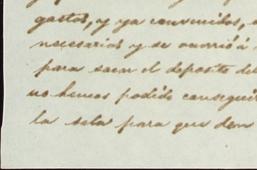 gastos, y ya convenidos,
necesarios y se ocurrió á
para sacar el deposito del
no hemos podido conseguir
la sela para que den